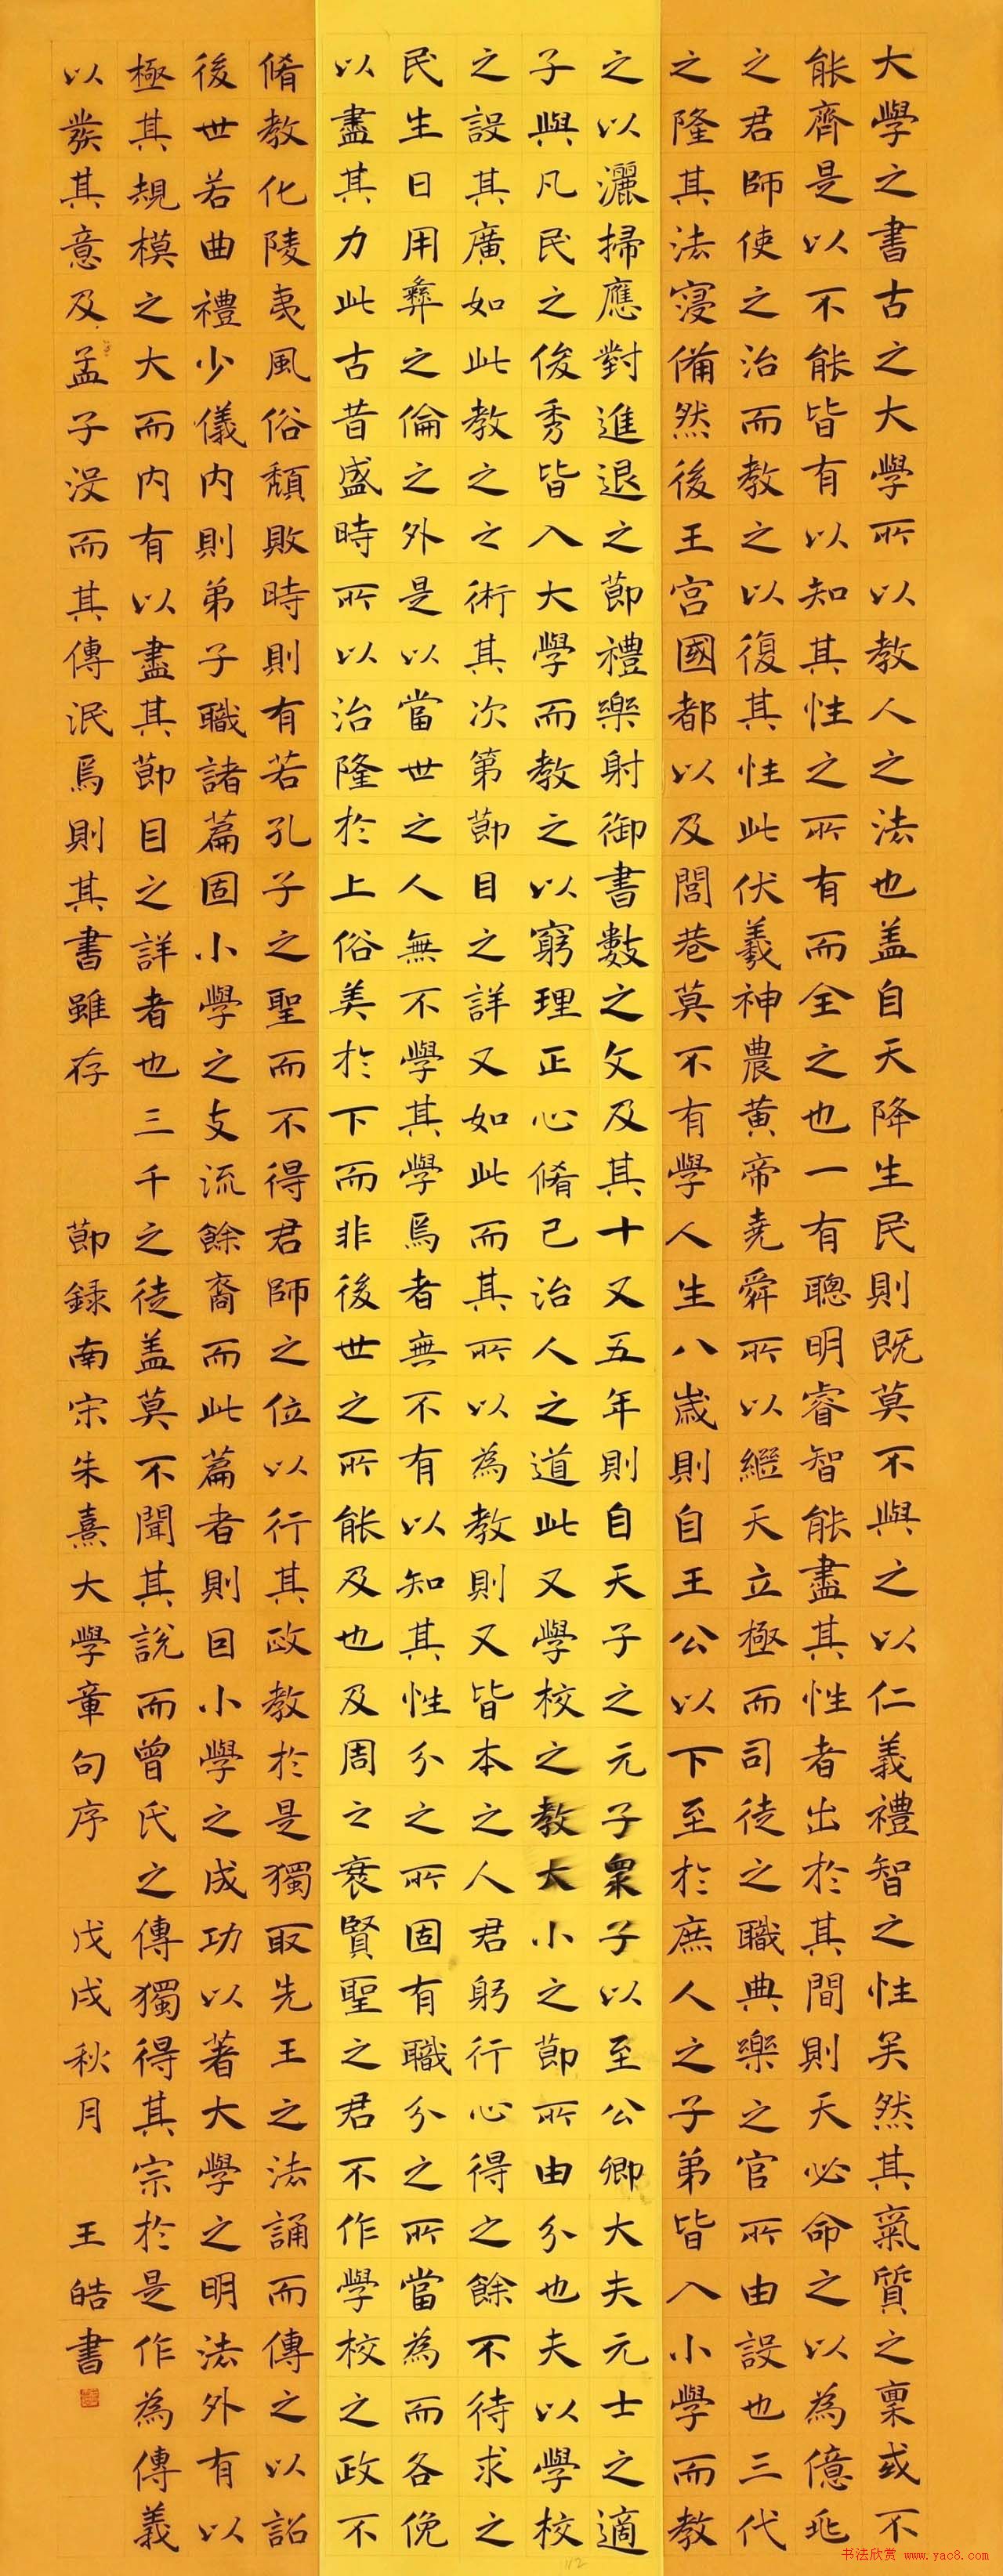 大學之書古之大學所以教人之法也盖自天降生民則既莫不與之以仁義禮智之性矣然其氣質之稟或不
能齊是以不能皆有以知其性之所有而全之也一有聰明睿智能盡其性者出於其間則天必命之以為億兆
之君師使之治而教之以復其性此伏羲神農黃帝堯舜所以繼天立極而司徒之職典樂之官所由設也三代
之隆其法寖備然後王宮國都以及閭巷莫不有學人生八歲則自王公以下至於庶人之子弟皆入小學而教
之以灑掃應對進退之節禮樂射御書數之文及其十又五年則自天子之元子衆子以至公卿大夫元士之適
子與凡民之俊秀皆入大學而教之以窮理正心脩己治人之道此又學校之教大小之節所由分也夫以學校
之設其廣如此教之之術其次第節目之詳又如此而其所以為教則又皆本之人君躬行心得之餘不待求之
民生日用彝之倫之外是以當世之人無不學其學焉者無不有以知其性分之所固有職分之所當為而各俛
以盡其力此古昔盛時所以治隆於上俗美於下而非後世之所能及也及周之衰賢聖之君不作學校之政不
脩教化陵夷風俗頹敗時則有若孔子之聖而不得君師之位以行其政教於是獨取先王之法誦而傳之以詔
後世若曲禮少儀內則弟子職諸篇固小學之支流餘裔而此篇者則因小學之成功以著大學之明法外有以
極其規模之大而內有以盡其節目之詳者也三千之徒盖莫不聞其說而曾氏之傳獨得其宗於是作為傳義
以發其意及孟子沒而其傳泯焉則其書雖存 節錄南宋朱熹大學章句序 戊戌秋月 王皓書
书法欣赏 www.yac8.com